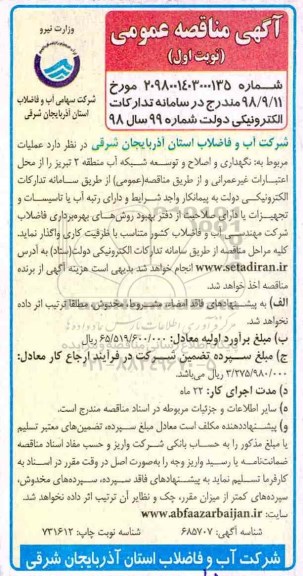 آگهی مناقصه عمومی
(نوبت اول)
وزارت نیرو
شرکت سهامی آب و فاضلاب
استان آذربایجان شرقی
شماره ۲۰۹۸۰۰۱۴۰۳۰۰۰۱۳۵ مورخ
۹۸/۹/۱۱ مندرج در سامانه تدارکات
الکترونیکی دولت شماره ۹۹ سال ۹۸
شرکت آب و فاضلاب استان آذربایجان شرقی در نظر دارد عملیات
مربوط به: نگهداری و اصلاح و توسعه شبکه آب منطقه ۲ تبریز را از محل
اعتبارات غیرعمرانی و از طریق مناقصه(عمومی) از طریق سامانه تدارکات
الکترونیکی دولت به پیمانکار واجد شرایط و دارای رتبه آب یا تاسیسات و
تجهیزات یا دارای صلاحیت از دفتر بهبود روش‌های بهره‌برداری فاضلاب
شرکت مهندسی آب و فاضلاب کشور متناسب با ظرفیت کاری واگذار نماید.
کلیه مراحل مناقصه از طریق سامانه تدارکات الکترونیکی دولت(ستاد) به آدرس
www.setadiran.ir انجام خواهد شد بدیهی است هزینه آگهی از برنده
مناقصه اخذ خواهد شد.
الف) به پیشنهادهای فاقد امضاء، مشروط، مخدوش، مطلقا ترتیب اثر داده
نخواهد شد.
ب) مبلغ برآورد اولیه معادل: ۶۵/۵۱۹/۶۰۰/۰۰۰ ریال
ج) مبلغ سپرده تضمین شرکت در فرآیند ارجاع کار معادل:
۳/۲۷۵/۹۸۰/۰۰۰ ریال می‌باشد.
د) مدت اجرای کار: ۲۲ ماه
ه) سایر اطلاعات و جزئیات مربوطه در اسناد مناقصه مندرج است.
و) پیشنهاددهنده مکلف است معادل مبلغ سپرده، تضمین‌های معتبر تسلیم
یا مبلغ مذکور را به حساب بانکی شرکت واریز و حسب مفاد اسناد مناقصه
ضمانت‌نامه یا رسید واریز وجه را به‌صورت اصل در وقت مقرر در اسناد به
کارفرما تسلیم نماید به پیشنهادهای فاقد سپرده، سپرده‌های مخدوش،
سپرده‌های کمتر از میزان مقرر، چک و نظایر آن ترتیب اثر داده نخواهد شد.
سایت: www.abfaazarbaijan.ir
شناسه آگهی: ۶۸۵۷۰۷ شناسه نوبت چاپ: ۷۳۱۶۱۲
شرکت آب و فاضلاب استان آذربایجان شرقی